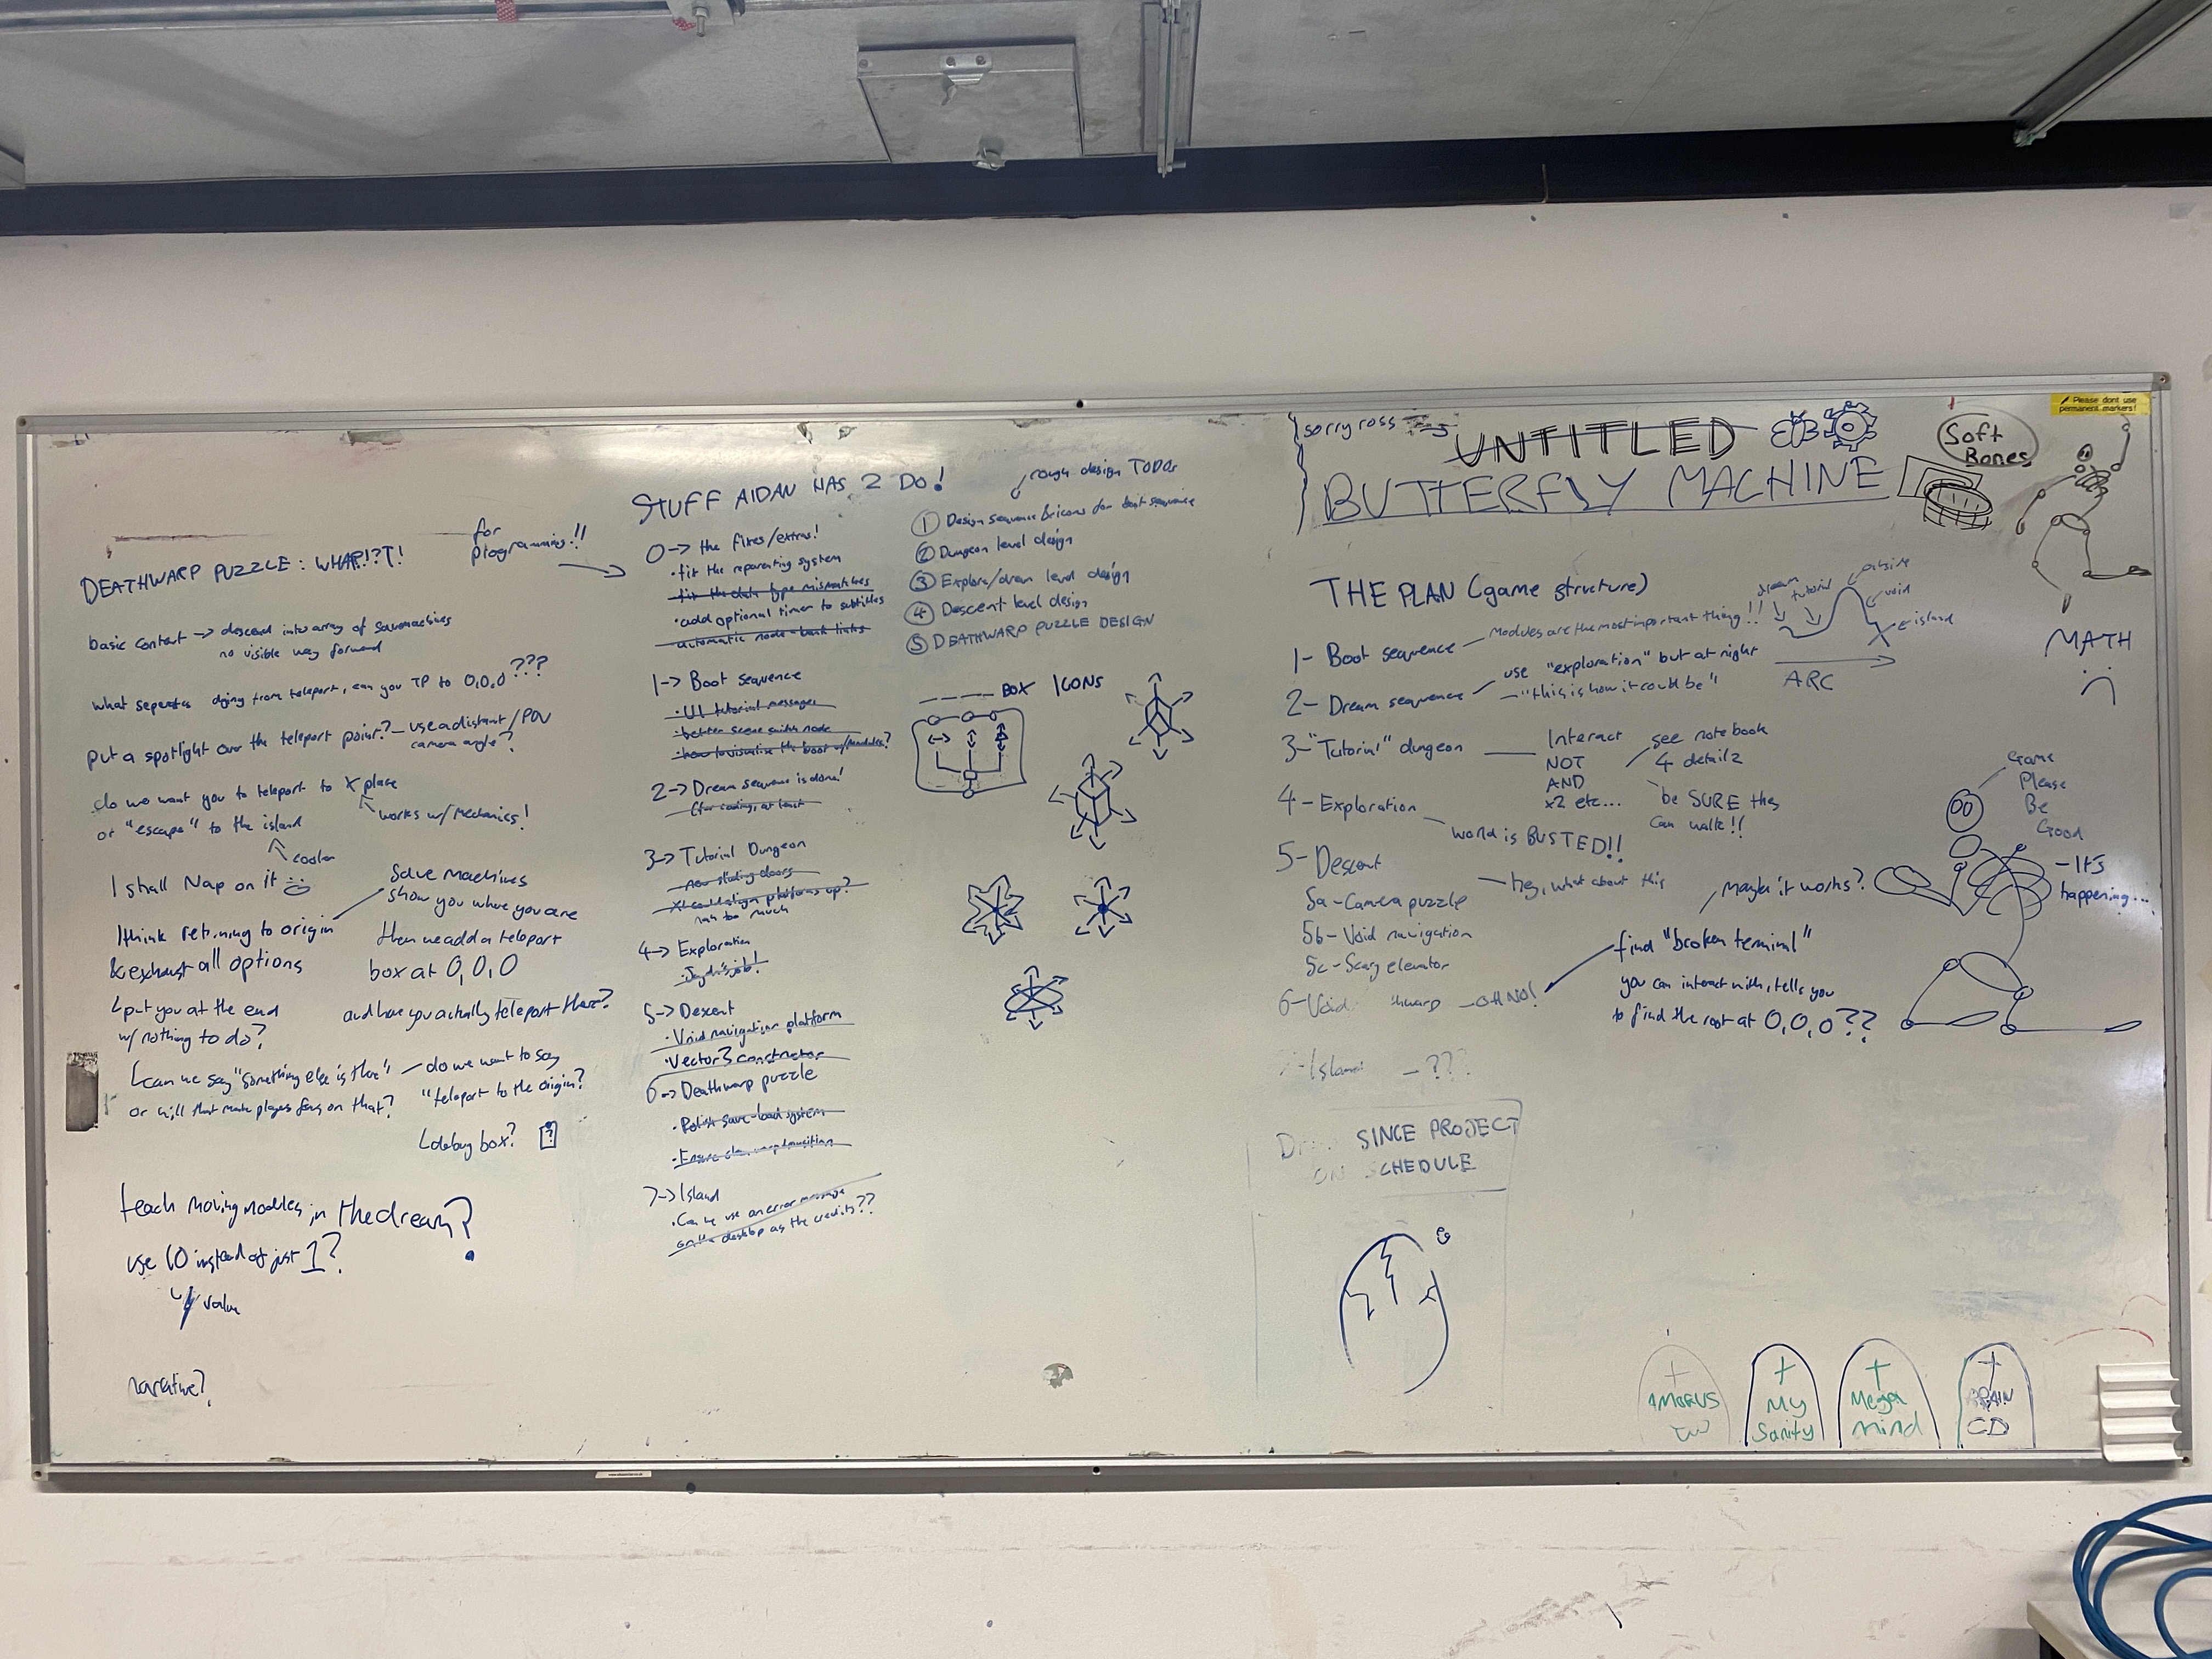 DEATHWARP PUZZLE: WHAP!?T!
for
programming!!
basic context -> descend into array of savemachines
no visible way forward
what seperates dying from teleport, can you TP to 0,0,0 ???
put a spotlight over the teleport point? - use a distant/POV
camera angle?
do we want you to teleport to X place
or "escape" to the island
works w/ mechanics!
cooler
I shall Nap on it
I think returning to origin
& exhaust all options
put you at the end
w/ nothing to do?
can we say "something else is there"
or will that make players focus on that?
Save machines
show you where you are
then we add a teleport
box at 0,0,0
and have you actually teleport there?
do we want to say
"teleport to the origin?
debug box? ?
teach moving modules in the dream?
use 10 instead of just 1?
value
narrative?
STUFF AIDAN HAS 2 DO!
0-> the fixes/extras!
·fix the reparenting system
·fix the data type mismatches
·add optional timer to subtitles
automatic node-bank links
1-> Boot sequence
·UI tutorial messages
·better scene switch node
·how to visualise the boot w/Modules?
2-> Dream sequence is done!
(for coding, at least
3-> Tutorial Dungeon
new sliding doors
platforms up?
nah too much
4-> Exploration
·Jaydn's job!
5-> Descent
·Void navigation platform
·Vector3 constructor
6-> Deathwarp puzzle
·Polish save-load system
·Ensure transition
7-> Island
·Can we use an error message
on the desktop as the credits??
rough design TODOs
① Design sequence & icons for boot sequence
② Dungeon level design
③ Explore/dream level design
④ Descent level design
⑤ DEATHWARP PUZZLE DESIGN
BOX ICONS
sorry ross
UNTITLED
BUTTERFLY MACHINE
Soft
Bones
Please dont use
permanent markers!
THE PLAN (game structure)
1- Boot sequence - Modules are the most important thing!!
2- Dream sequence - use "exploration" but at night
- "this is how it could be"
3- "Tutorial" dungeon
Interact
NOT
AND
x2 etc...
see notebook
4 detailz
be SURE they
can walk!!
4- Exploration
world is BUSTED!!
5- Descent - hey, what about this
5a- Camera puzzle
5b- Void navigation
5c- Scary elevator
6- Void - OH NO!
Island - ???
maybe it works?
find "broken terminal"
you can interact with, tells you
to find the root at 0,0,0??
dream
tutorial
outside
void
island
ARC
MATH
Game
Please
Be
Good
-It's
happening...
SINCE PROJECT
ON SCHEDULE
AMOGUS
My
Sanity
Mega
mind
BRAIN
CD